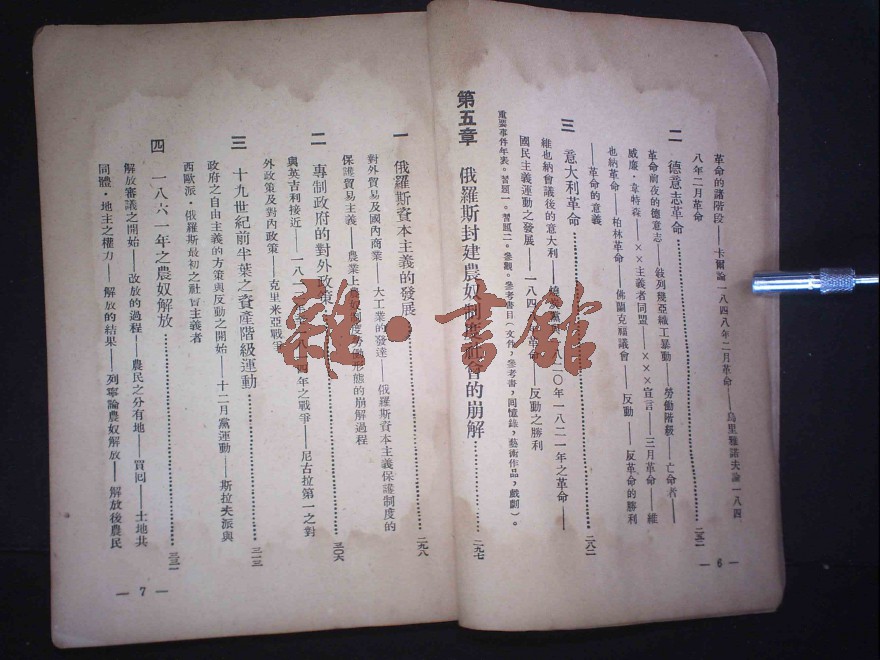 革命的諸階段——卡爾論一八四八年二月革命——烏里雅諾夫論一八四
八年二月革命
二 德意志革命 二五二
革命前夜的德意志——敍列飛亞織工暴動——勞働階級——亡命者——
威廉·韋特森——××主義者同盟——×××宣言——三月革命——維
也納革命——柏林革命——佛蘭克福議會——反動——反革命的勝利
——革命的意義
三 意大利革命 二八二
維也納會議後的意大利——燒炭黨與一八二〇年一八二一年之革命——
國民主義運動之發展——一八四八年革命——反動之勝利
重要事件年表。習題一。習題二。參觀。參考書目(文件,參考書,囘憶錄,藝術作品,戲劇)。
第五章 俄羅斯封建農奴制度社會的崩解 二九七
一 俄羅斯資本主義的發展 二九八
對外貿易及國內商業——大工業的發達——俄羅斯資本主義保護制度的
保護貿易主義——農業上農奴制度勞働形態的崩解過程
二 專制政府的對外政策 三〇六
與英吉利接近——一八一二年至一八一四年之戰爭——尼古拉第一之對
外政策及對內政策——克里米亞戰爭
三 十九世紀前半葉之資產階級運動 三一三
政府之自由主義的方策與反動之開始——十二月黨運動——斯拉夫派與
西歐派·俄羅斯最初之社會主義者
四 一八六一年之農奴解放 三三一
解放審議之開始——改放的過程——農民之分有地——買囘——土地共
同體·地主之權力——解放的結果——列寧論農奴解放——解放後農民
— 6 —
— 7 —
雜·書館